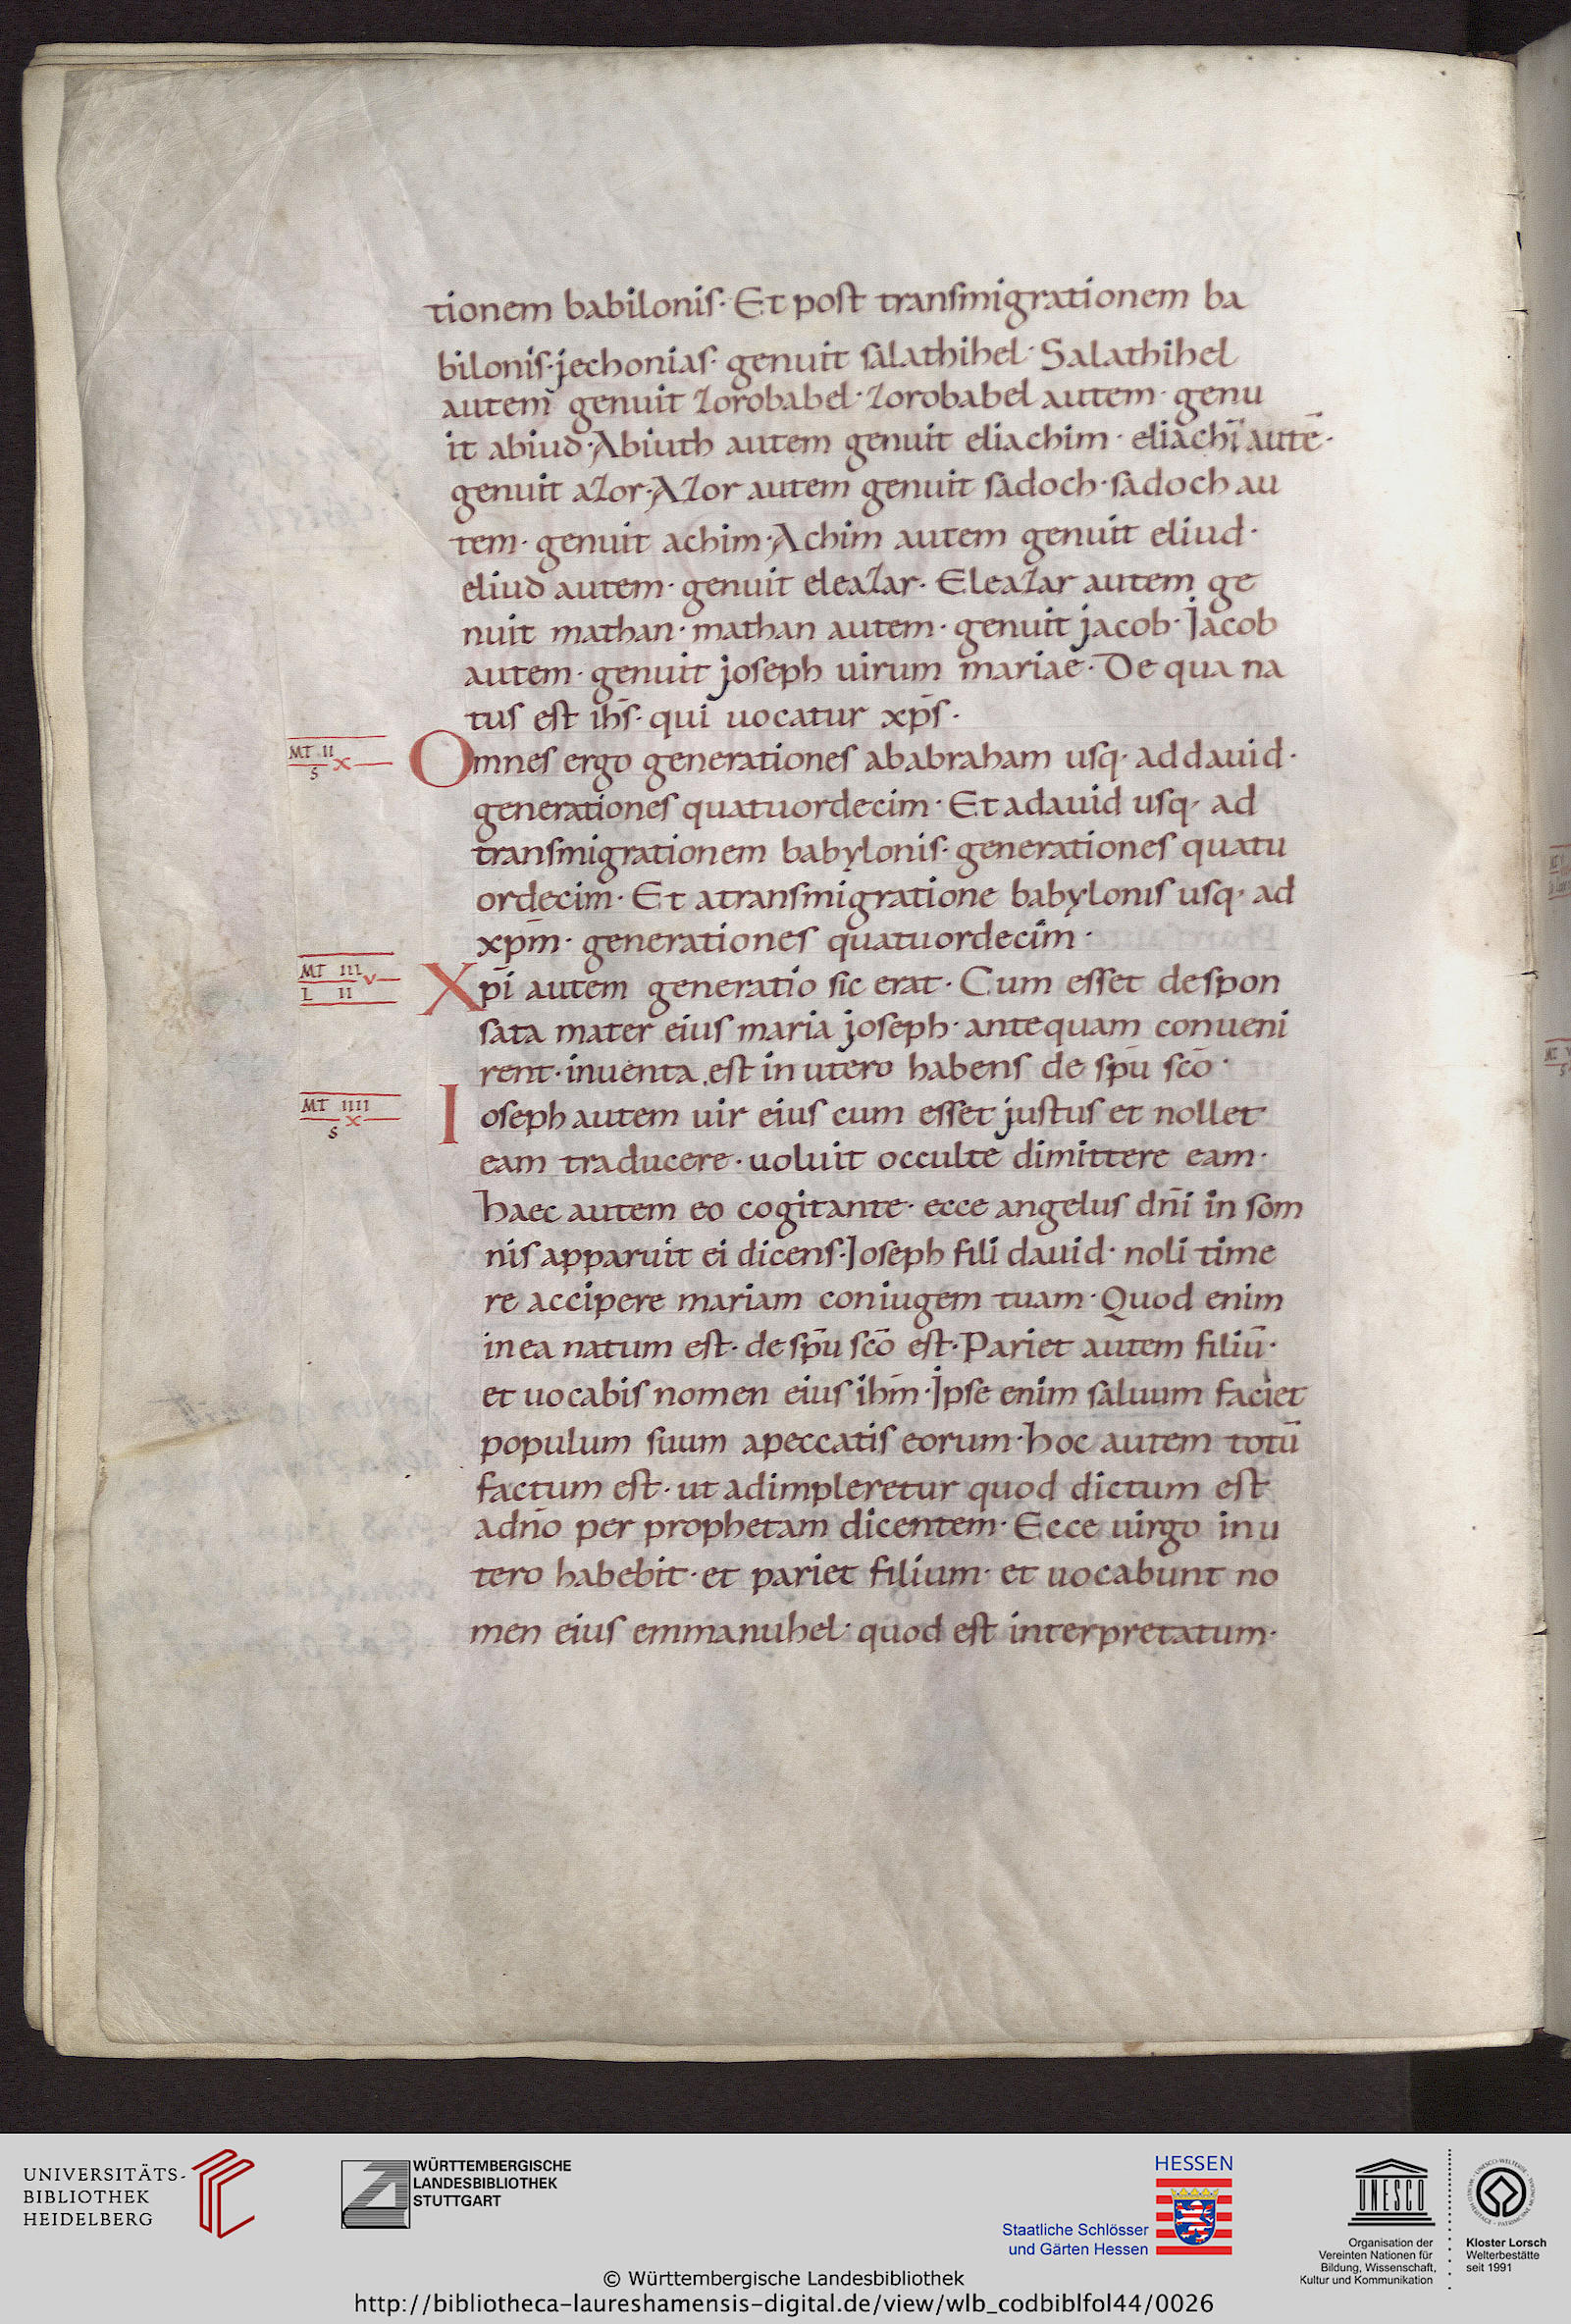 tionem babilonis· Et post transmigrationem ba
bilonis· jechonias· genuit salathihel· Salathihel
autem genuit zorobabel· zorobabel autem· genu
it abiud· Abiuth autem genuit eliachim· eliachī autē·
genuit azor· Azor autem genuit sadoch· sadoch au
tem· genuit achim· Achim autem genuit eliud·
eliud autem· genuit eleazar· Eleazar autem ge
nuit mathan· mathan autem· genuit jacob· Jacob
autem· genuit joseph uirum mariae· De qua na
tus est ihs̄· qui uocatur xps̄·
MT II
S X
Omnes ergo generationes ababraham usq· ad dauid·
generationes quatuordecim· Et adauid usq· ad
transmigrationem babylonis· generationes quatu
ordecim· Et atransmigratione babylonis usq· ad
xpm̄· generationes quatuordecim·
MT III V
L II
Xpī autem generatio sic erat· Cum esset despon
sata mater eius maria joseph· antequam conueni
rent· inuenta est in utero habens de spū scō·
MT IIII
S X
Ioseph autem uir eius cum esset justus et nollet
eam traducere· uoluit occulte dimittere eam·
haec autem eo cogitante· ecce angelus dnī in som
nis apparuit ei dicens· Joseph fili dauid· noli time
re accipere mariam coniugem tuam· Quod enim
in ea natum est· de spū scō est· Pariet autem filiū·
et uocabis nomen eius ihm̄· Ipse enim saluum faciet
populum suum apeccatis eorum· hoc autem totū
factum est· ut adimpleretur quod dictum est
adnō per prophetam dicentem· Ecce uirgo in u
tero habebit· et pariet filium· et uocabunt no
men eius emmanuhel· quod est interpretatum·
UNIVERSITÄTS-
BIBLIOTHEK
HEIDELBERG
WÜRTTEMBERGISCHE
LANDESBIBLIOTHEK
STUTTGART
HESSEN
Staatliche Schlösser
und Gärten Hessen
UNESCO
Organisation der
Vereinten Nationen für
Bildung, Wissenschaft,
Kultur und Kommunikation
Kloster Lorsch
Welterbestätte
seit 1991
© Württembergische Landesbibliothek
http://bibliotheca-laureshamensis-digital.de/view/wlb_codbiblfol44/0026